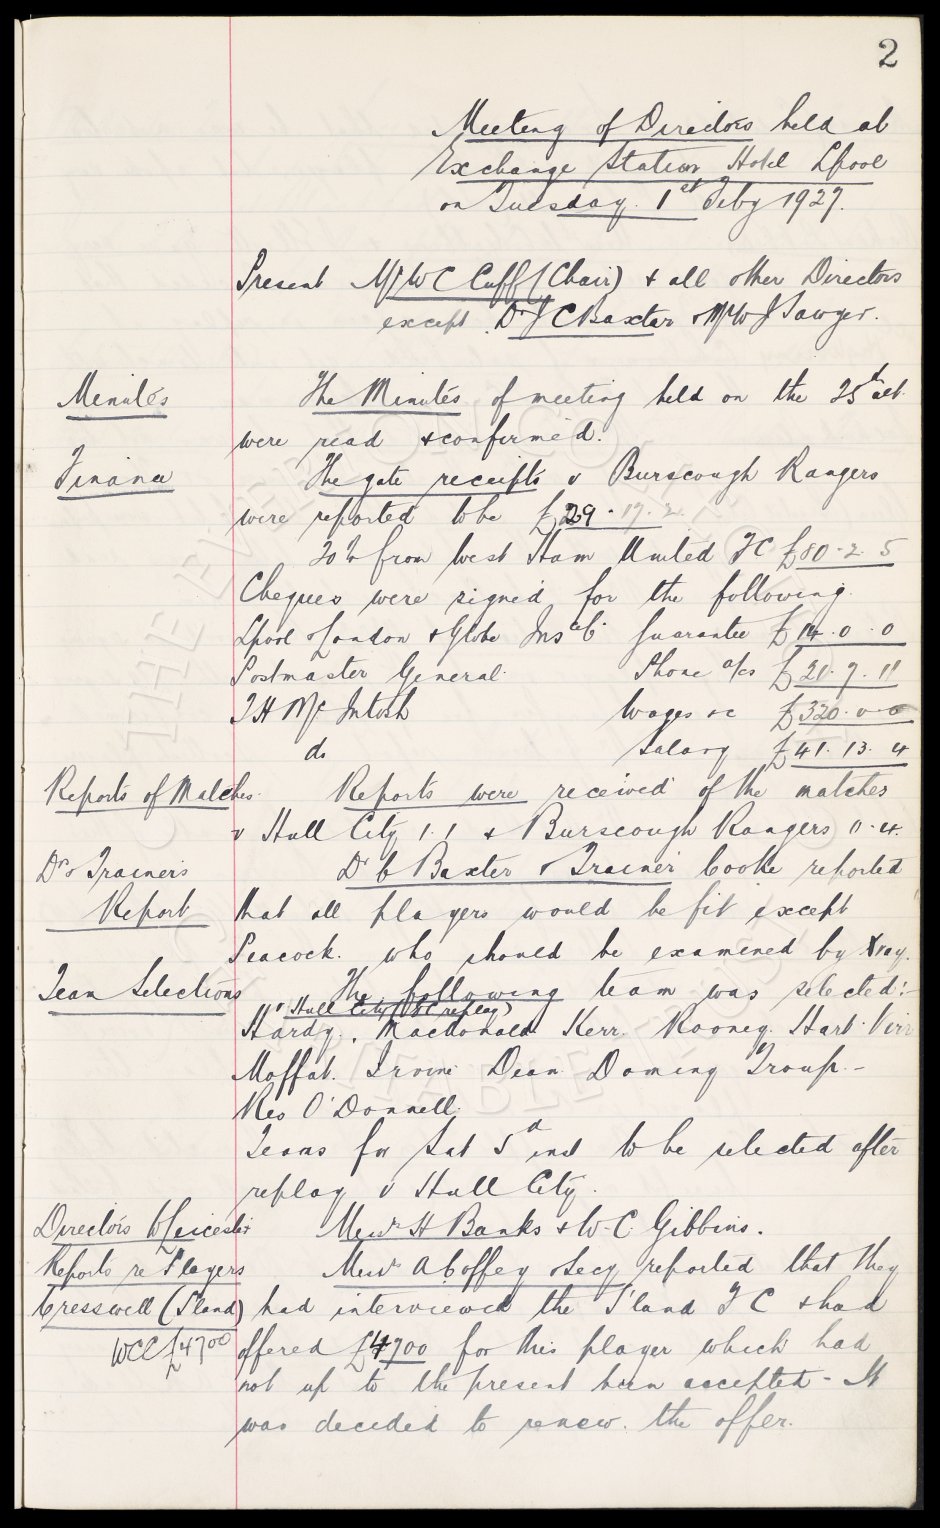 2
Meeting of Directors held at
Exchange Station Hotel Lpool
on Tuesday. 1st Feby 1927.
Present Mr W C Cuff (Chair) & all other Directors
except Dr J C Baxter & Mr W J Sawyer.
Minutes The Minutes of meeting held on the 25th ult
were read & confirmed.
Finance The gate receipts v Burscough Rangers
were reported to be £29 - 17. 2
20% from West Ham United FC £80 - 2. 5
Cheques were signed for the following
Lpool & London & Globe Insce Co Guarantee £14. 0. 0
Postmaster General. Phone a/cs £21. 7. 11
T H McIntosh Wages &c £320. 0. 0
do Salary £41. 13. 4
Reports of Matches. Reports were received of the matches
v Hull City 1. 1 & Burscough Rangers 0. 4.
Dr & Trainers Dr C Baxter & Trainer Cooke reported
Report that all players would be fit except
Peacock. who should be examined by Xray.
Team Selections The following team was selected:-
v Hull City (EC replay)
Hardy. MacDonald Kerr. Rooney. Hart. Virr
Moffat. Irvine Dean Doming Troup. -
Res O'Donnell.
Teams for Sat 5th inst to be selected after
replay v Hull City.
Directors to Leicester Messrs H Banks & W. C. Gibbins.
Reports re Players Messrs A Coffey & Secy reported that they
Cresswell (S'land) had interviewed the S'land F C & had
WCC £4700 offered £4700 for this player which had
not up to the present been accepted - It
was decided to renew. the offer.
THE EVERTON COLLECTION CHARITABLE TRUST